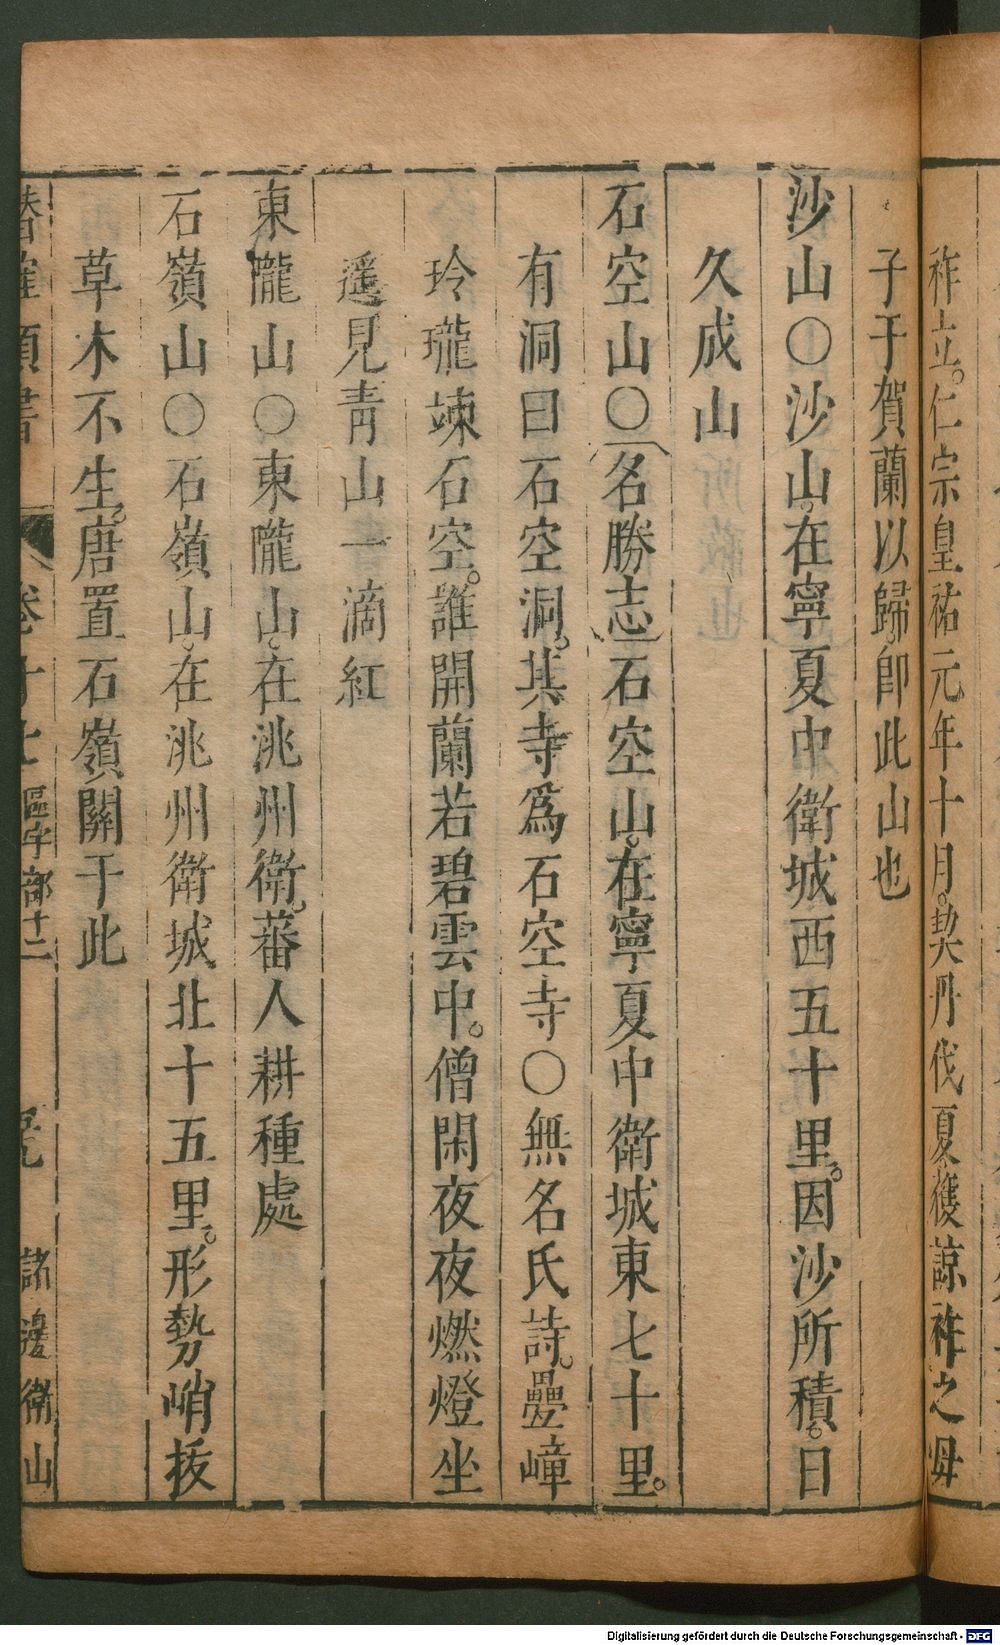 祚立。仁宗皇祐元年十月。契丹伐夏。獲諒祚之母
子于賀蘭以歸。卽此山也
沙山○沙山。在寧夏中衛城西五十里。因沙所積。日
久成山
石空山○(名勝志)石空山。在寧夏中衛城東七十里。
有洞曰石空洞。其寺爲石空寺○無名氏詩。疊嶂
玲瓏竦石空。誰開蘭若碧雲中。僧閑夜夜燃燈坐
遥見青山一滴紅
東隴山○東隴山。在洮州衛。蕃人耕種處
石嶺山○石嶺山。在洮州衛城北十五里。形勢峭拔
草木不生。唐置石嶺關于此
潛確類書 卷十七 區宇部十二 諸邊衛山
Digitalisierung gefördert durch die Deutsche Forschungsgemeinschaft - DFG